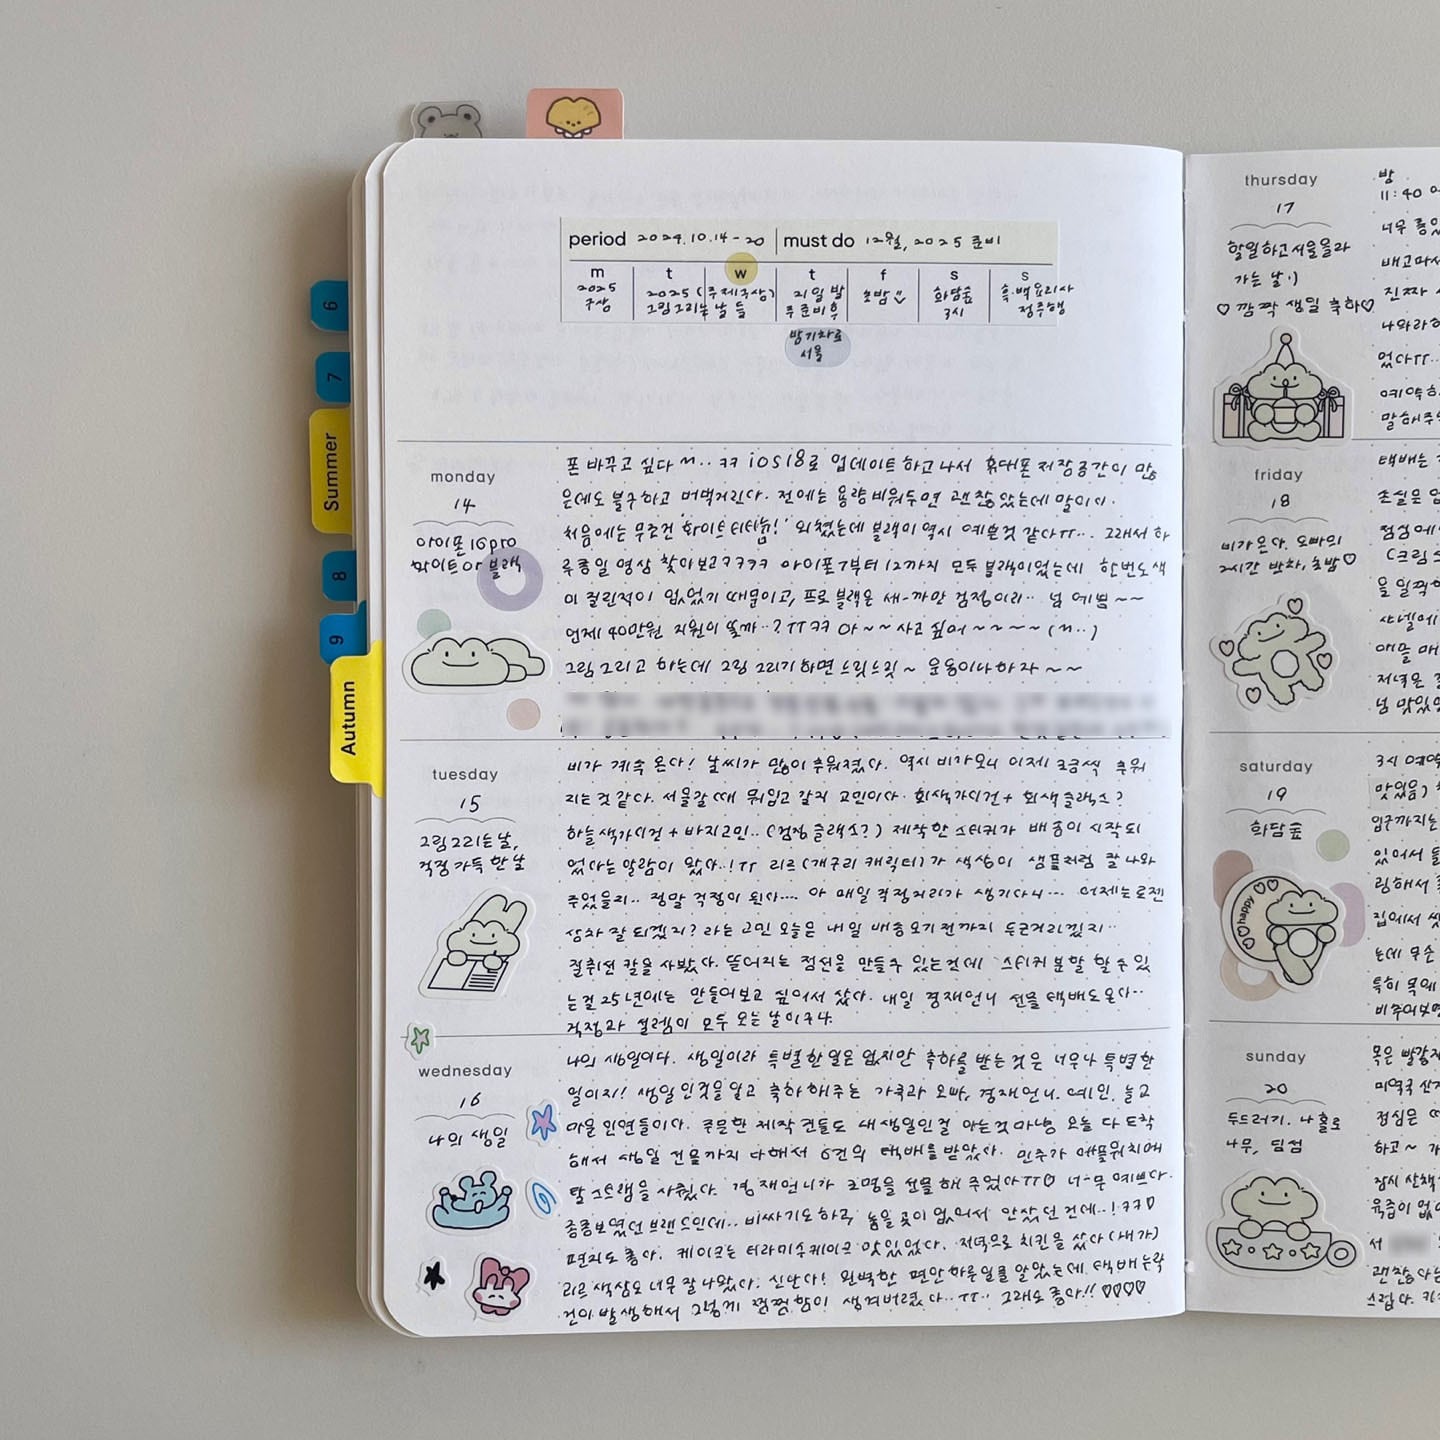 6
7
Summer
8
9
Autumn
period 2024.10.14-20 must do 12월, 2025 준비
m t w t f s s
2025 구상
2025 (주제구상) 그림그리는 날들
21일 발주준비 후
초밤
화담숲 3시
흑.백요리사 정주행
밤기차로 서울
monday
14
아이폰 16pro
화이트 or 블랙
폰 바꾸고 싶다 ㅋㅋ ios18로 업데이트 하고나서 휴대폰 저장공간이 많
은데도 불구하고 버벅거린다. 전에는 용량비워두면 괜찮았는데 말이지.
처음에는 무조건 '화이트티타늄!' 외쳤는데 블랙이 역시 예쁜것 같다ㅠㅠ... 그래서 하
루종일 영상 찾아보고ㅋㅋㅋㅋ 아이폰7부터 12까지 모두 블랙이었는데 한번도 색
이 질린적이 없었기 때문이고, 프로블랙은 새-까만 검정이라.. 넘 예쁨~~
언제 40만원 지원이 뜰까..?ㅠㅠㅋㅋ 아~~사고싶어~~~~
그림 그리고 하는데 그림 그리기하면 느릿느릿~ 운동이나하자~~
tuesday
15
그림 그리는 날,
걱정 가득 한 날
비가 계속 온다! 날씨가 많이 추워졌다. 역시 비가오니 이제 조금씩 추워
지는것 같다. 서울갈 때 뭐입고 갈지 고민이다. 회색가디건 + 회색슬랙스?
하늘색가디건 + 바지고민.. (검정 슬랙스?) 제작한 스티커가 배송이 시작되
었다는 알람이 왔다..!ㅠㅠ 리르(개구리 캐릭터)가 색상이 샘플처럼 잘 나와
주었을지.. 정말 걱정이 된다.... 아 매일 걱정거리가 생기다니... 어제는 로젠
상차 잘 되겠지? 라는 고민 오늘은 내일 배송오기 전까지 두근거리겠지..
절취선 칼을 사봤다. 뜯어지는 점선을 만들수 있는건데 스티커 분할 할 수 있
는걸 25년에는 만들어보고 싶어서 샀다. 내일 경재언니 선물 택배도 온다..
걱정과 설렘이 모두 오는 날이구나.
wednesday
16
나의 생일
나의 생일이다. 생일이라 특별한 일은 없지만 축하를 받는 것은 너무나 특별한
일이지! 생일 인것을 알고 축하 해주는 가족과 오빠, 경재언니, 예인, 늘고
마운 인연들이다. 주문한 제작 건들도 내 생일인걸 아는것 마냥 오늘 다 도착
해서 생일 선물까지 다해서 6건의 택배를 받았다. 민주가 애플워치에
탈 스트랩을 사줬다. 경재언니가 조명을 선물 해 주었다ㅠㅠ♡ 너-무 예쁘다.
종종보였던 브랜드인데.. 비싸기도하고 놓을 곳이 없어서 안샀던 건데..!ㅋㅋ♡
편지도 좋아. 케이크는 티라미수케이크 맛있었다. 저녁으로 치킨을 샀다(내가)
리르 색상도 너무 잘 나왔다. 신난다! 완벽한 편안 하루일줄 알았는데 택배누락
건이 발생해서 그렇게 찜찜함이 생겨버렸다..ㅠㅠ.. 그래도 좋아!! ♡♡♡♡
thursday
17
할일하고 서울올라
가는 날:)
♡ 깜짝 생일 축하♡
밤
11:40
너무 좋았
배고파서
진짜
나와라
었다ㅠㅠ..
예약하
말해주
friday
18
비가온다. 오빠의
2시간 반차, 초밤♡
택배는
손실은
점심에
(크림
을 일찍
샤넬에
애플 매
저녁은
넘 맛있
saturday
19
화담숲
happy
3시 예약
맛있음)
입구까지는
있어서
집에서
는데 무슨
특히 목에
비추어보면
sunday
20
두드러기. 나홀로
나무, 팀점
목은 빨갛게
미역국
점심은
하고~
잠시 산책
육즙이 없
서
괜찮다
스럽다.